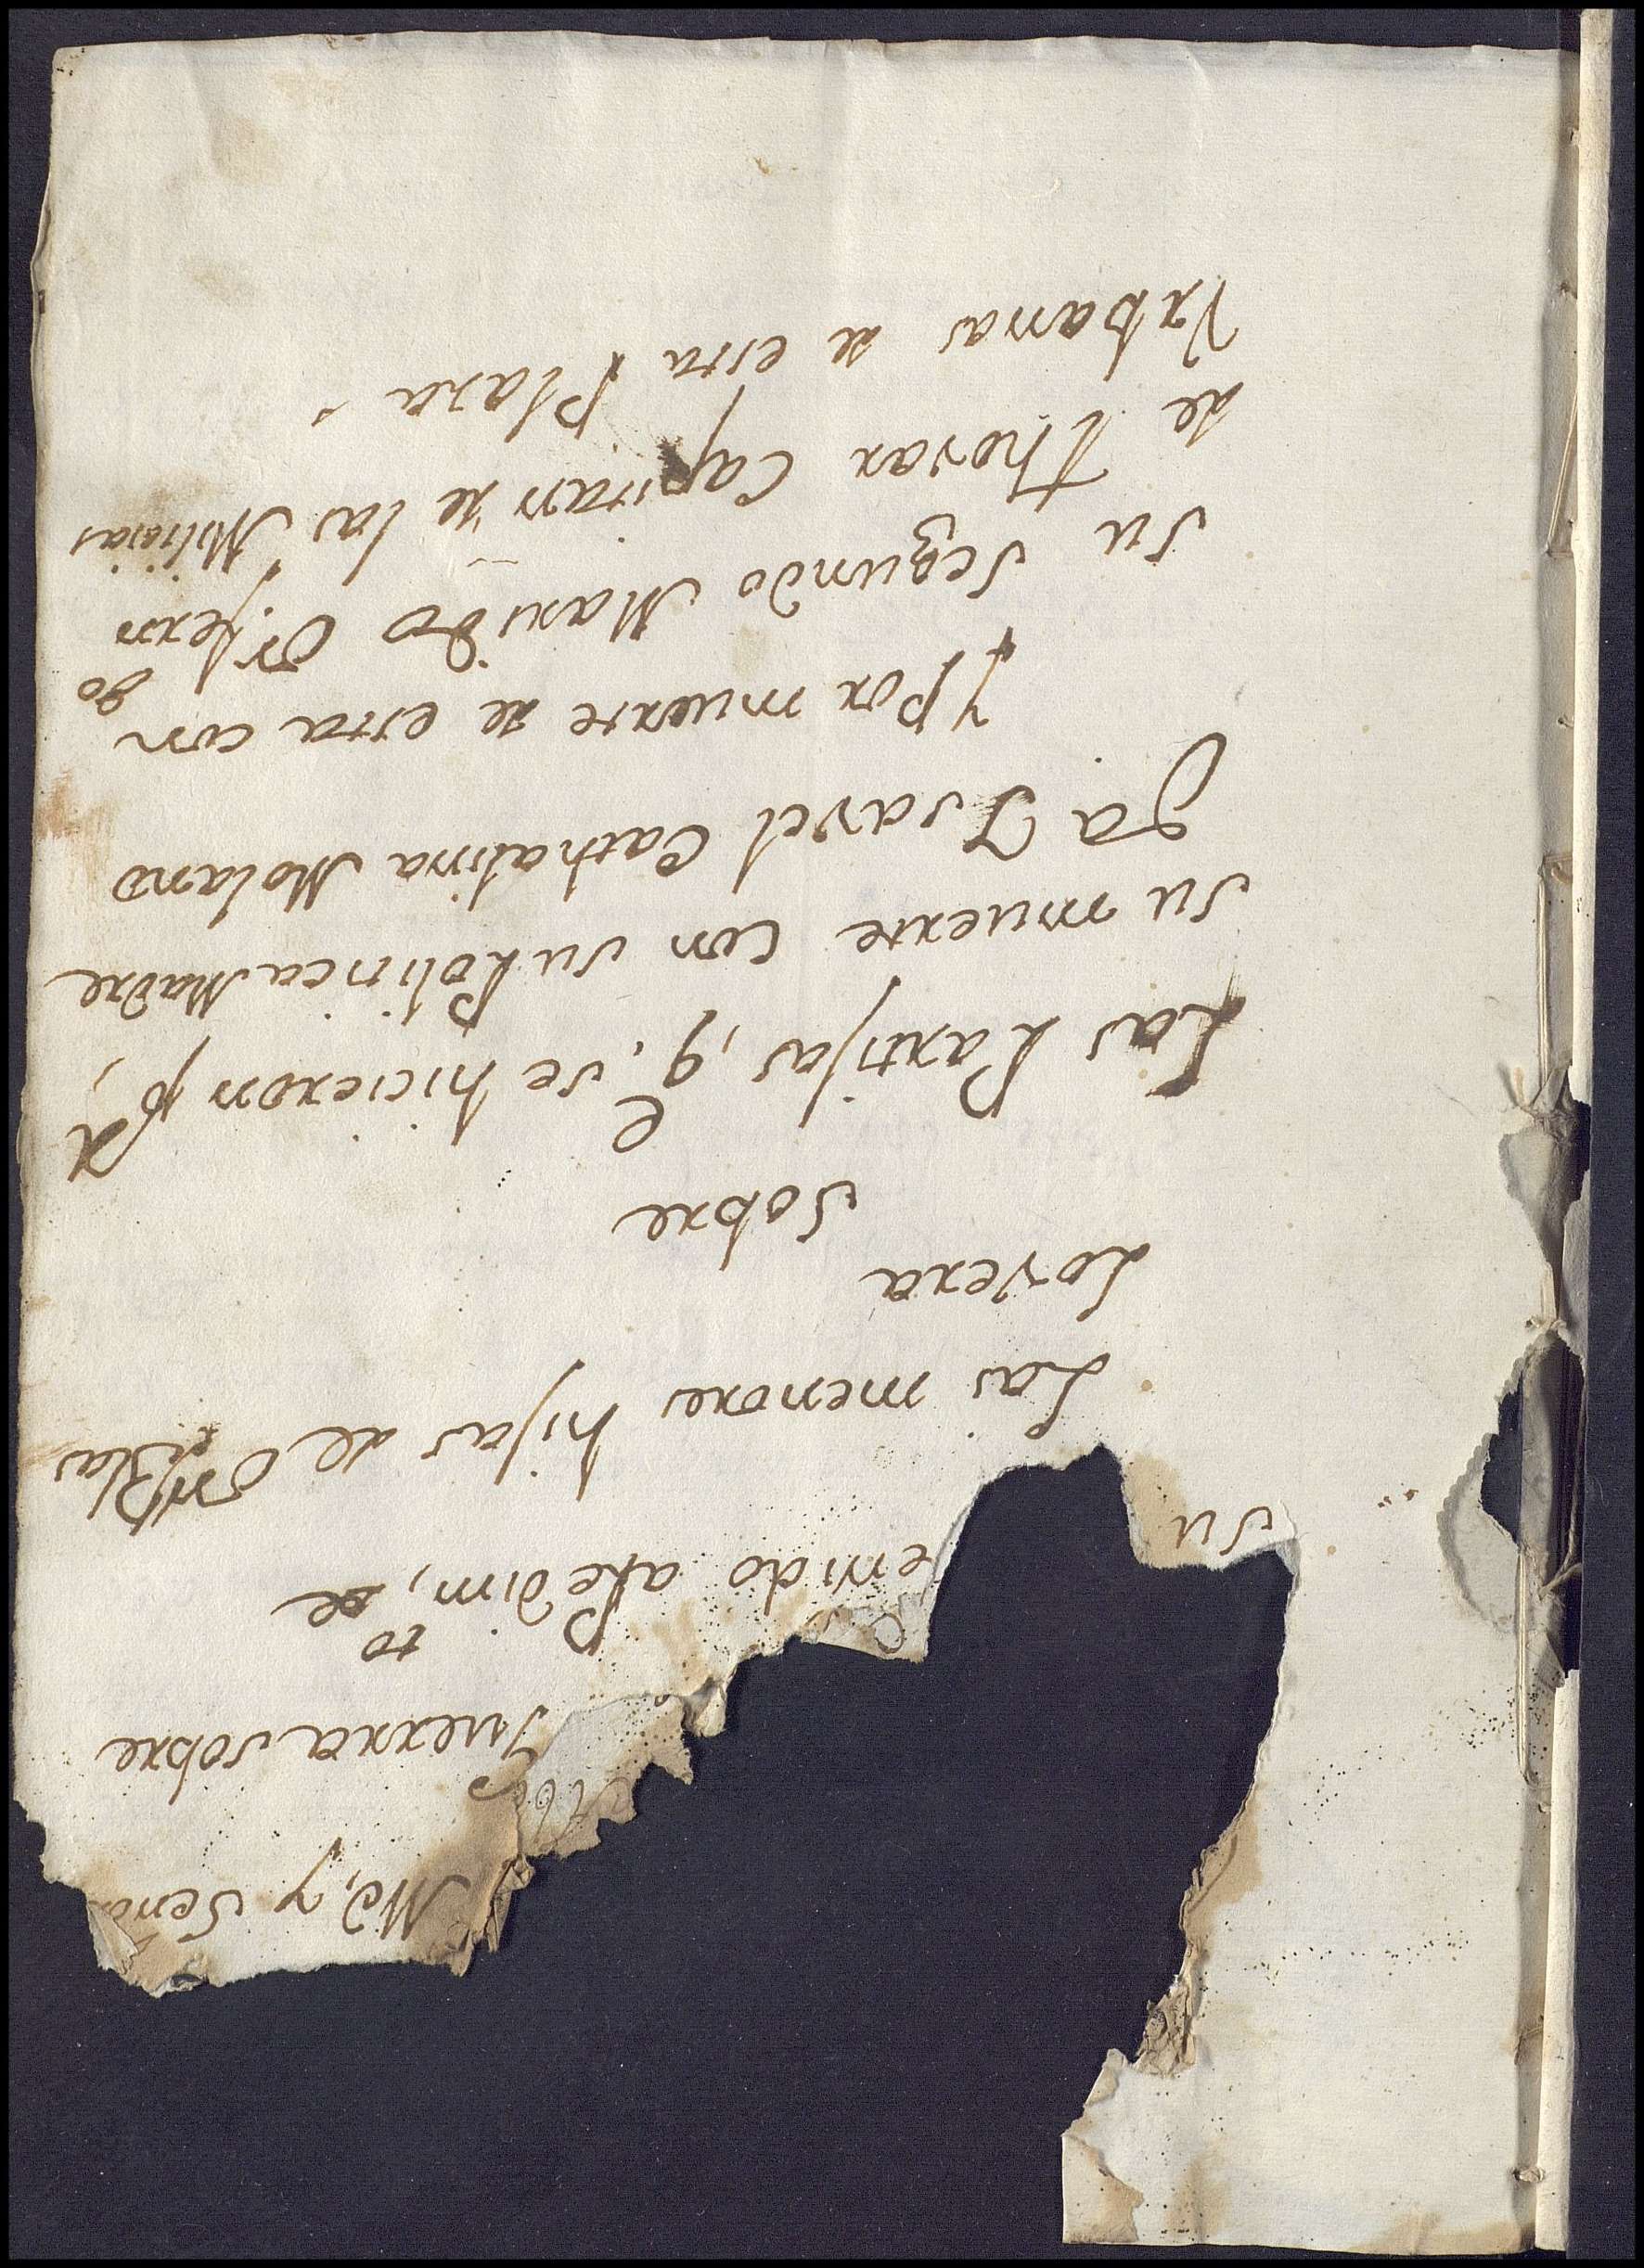 Md, y Seno
Guerra sobre
Su
enido a Pedim,to de
Las menores hijas de Dn Blas
Lovera
Sobre
Las Partijas, q.e se hicieron pr,
su muerte con su Politica Madre
Da Isavel Cathalina Molano
y Por muerte de esta con
su segundo Marido Dn Ferngo
de thovar Capitan de las Milicias
Vrbanas de esta Plaza